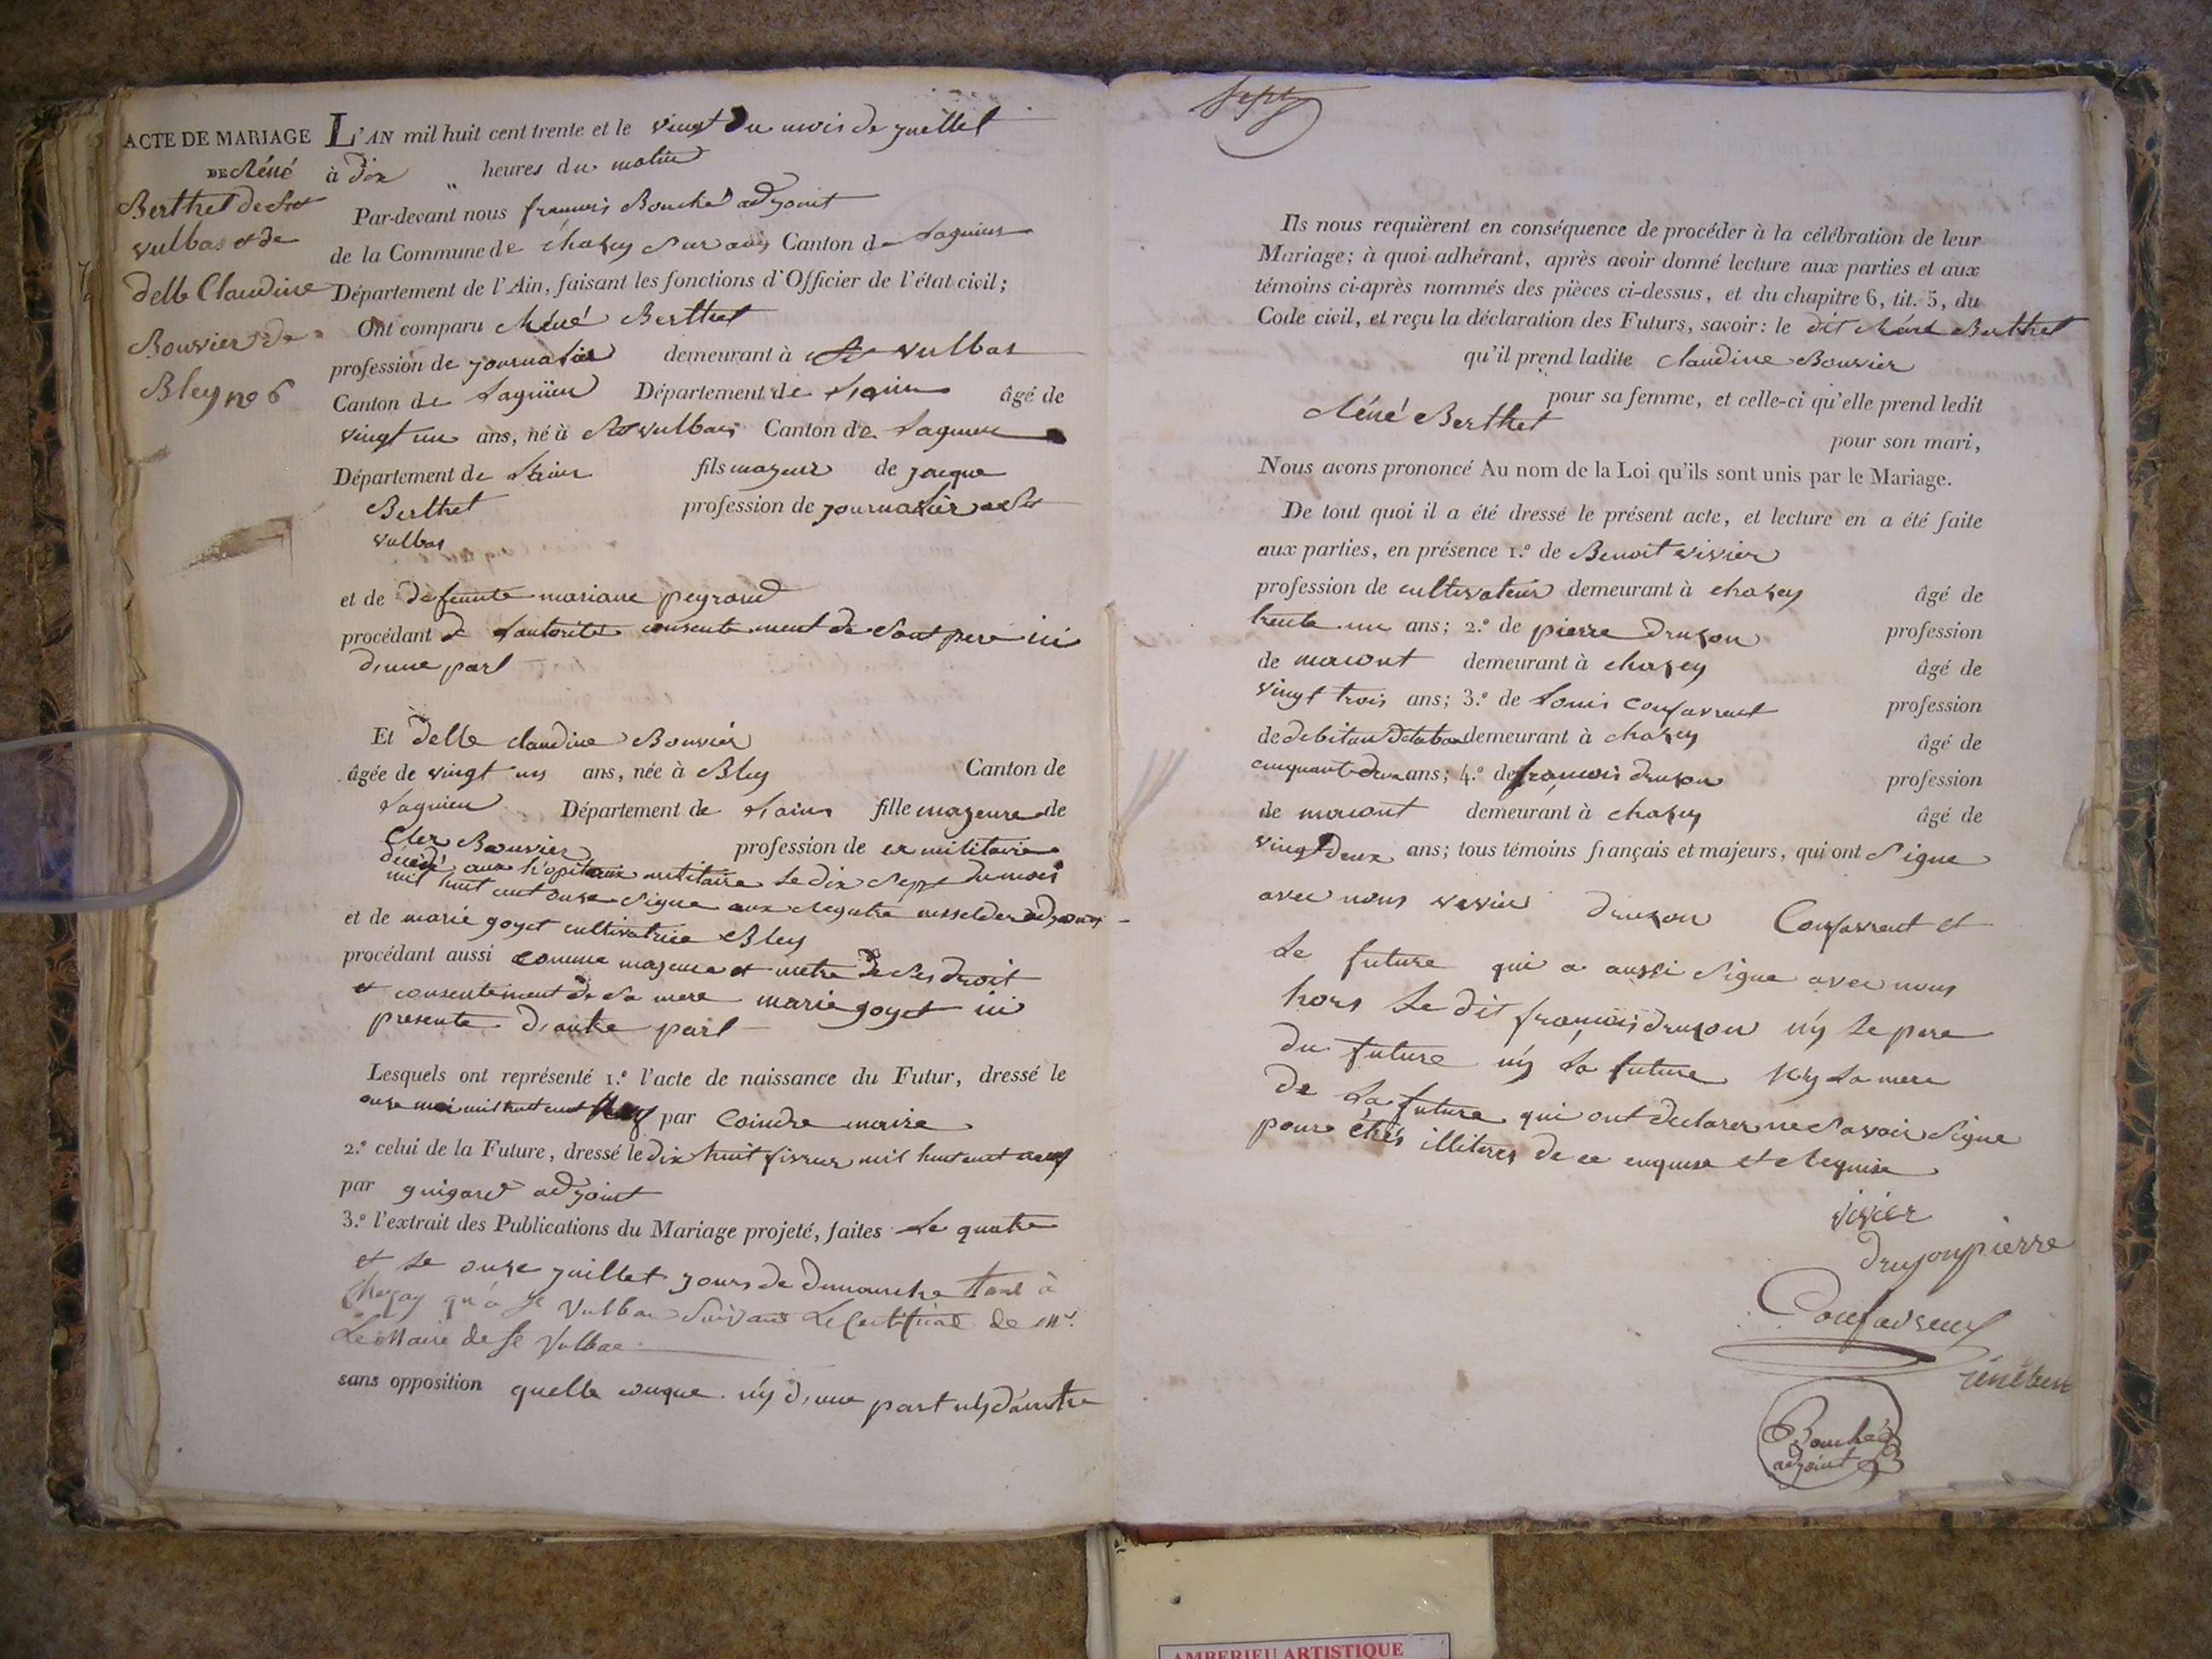 ACTE DE MARIAGE
DE Réné
Berthet de St
vulbas et de
delle Claudine
Bouvier de
Bley no 6
L'AN mil huit cent trente et le vingt du mois de juellet
à dix " heures du matin
Par-devant nous francois Bouché adjoint
de la Commune de chazey sur ain Canton de Lagnieu
Département de l'Ain, faisant les fonctions d'Officier de l'état civil;
Ont comparu Réné Berthet
profession de journalier demeurant à St vulbas
Canton de Lagnieu Département de Lain âgé de
vingt un ans, né à St vulbas Canton de Lagnieu
Département de Lain fils majeur de jacque
Berthet profession de journalier a St
vulbas
et de defeunte mariane peyraud
procédant de Lautorité consentement de Sont pere ici
d'une part
Et delle claudine Bouvier
âgée de vingt un ans, née à Bley Canton de
Lagnieu Département de Lain fille majeure de
Bouvier profession de ex militaire
décédé aux hôpitaux militaire Le dix Sept du mois
mil huit cent onze Signe aux Registre
et de marie goyet cultivatrice Bley
procédant aussi comme majeure et metre de Ses droit
et consentement de Sa mere marie goyet ici
presente d'autre part
Lesquels ont représenté 1.º l'acte de naissance du Futur, dressé le
onze mai mil huit cent neuf par Coindre maire
2.º celui de la Future, dressé le dix huit fivrier mil huit cent neuf
par guigard adjoint
3.º l'extrait des Publications du Mariage projeté, faites Le quatre
et Le onze juillet jours de dimanche tant à
Chazay qu'à St Vulbas Suivant Le Certificat de Mr.
Le Maire de St Vulbas
sans opposition quelle conque ny d'une part ny d'autre
sept
Ils nous requièrent en conséquence de procéder à la célébration de leur
Mariage; à quoi adhérant, après avoir donné lecture aux parties et aux
témoins ci-après nommés des pièces ci-dessus, et du chapitre 6, tit. 5, du
Code civil, et reçu la déclaration des Futurs, savoir: le dit Réné Berthet
qu'il prend ladite claudine Bouvier
pour sa femme, et celle-ci qu'elle prend ledit
Réné Berthet
pour son mari,
Nous avons prononcé Au nom de la Loi qu'ils sont unis par le Mariage.
De tout quoi il a été dressé le présent acte, et lecture en a été faite
aux parties, en présence 1.º de Benoit vivier
profession de cultivateur demeurant à chazey âgé de
trente un ans; 2.º de pierre druzon profession
de macont demeurant à chazey âgé de
vingt trois ans; 3.º de Louis confavreut profession
de debitan de taba demeurant à chazey âgé de
cinquante deux ans; 4.º de françois druzon profession
de macont demeurant à chazey âgé de
vingt deux ans; tous témoins français et majeurs, qui ont Signe
avec nous vivier druzon Confavreut et
Le future qui a aussi Signe avec nous
hors Le dit françois druzon ny Le pere
du future ny La future ny La mere
de La future qui ont declarer ne Savoir Signe
pour être illiteres de ce enquise et Requise
vivier
druzon pierre
Confavreux
réné bert
Bouché
adjoint
AMBERIEU ARTISTIQUE